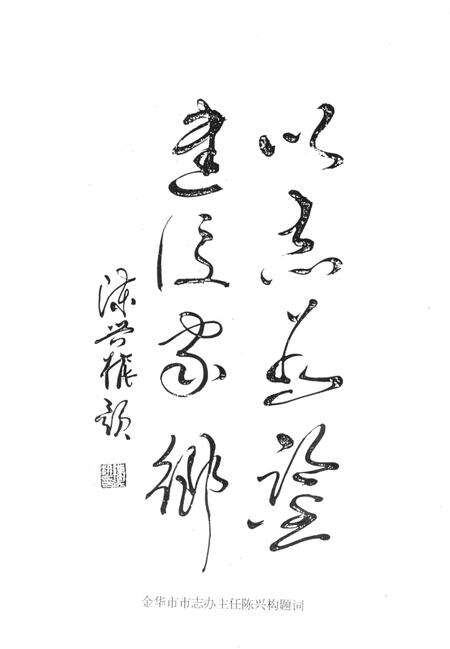 以志为鉴
建设家鄉
陈兴構题
金华市市志办主任陈兴构题词